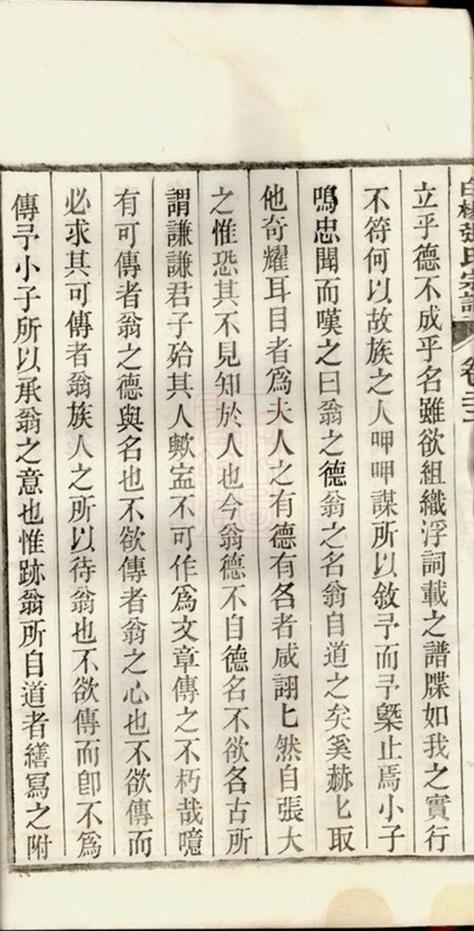 白楊張氏宗譜 卷三
立乎德不成乎名雖欲組織浮詞載之譜牒如我之實行
不符何以故族之人呷呷謀所以敘予而予槩止焉小子
鳴忠聞而嘆之曰翁之德翁之名翁自道之矣奚赫匕取
他奇耀耳目者爲夫人之有德有名者咸詡匕然自張大
之惟恐其不見知於人也今翁德不自德名不欲名古所
謂謙謙君子殆其人歟盍不可作爲文章傳之不朽哉噫
有可傳者翁之德與名也不欲傳者翁之心也不欲傳而
必求其可傳者翁族人之所以待翁也不欲傳而卽不爲
傳予小子所以承翁之意也惟跡翁所自道者繕寫之附